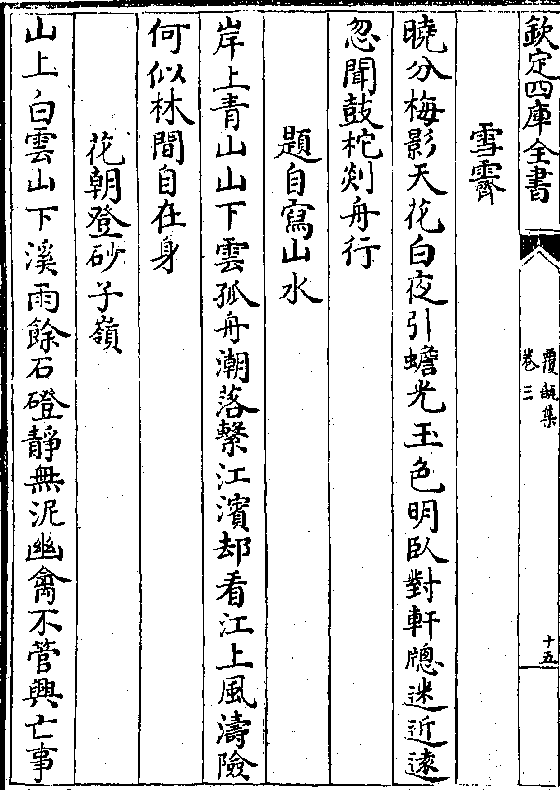 欽定四庫全書
覆瓿集
卷三
十五
雪霽
曉分梅影天花白夜引蟾光玉色明臥對軒窻迷近遠
忽聞鼓柁剡舟行
題自寫山水
岸上青山山下雲孤舟潮落繫江濱却看江上風濤險
何似林間自在身
花朝登砂子嶺
山上白雲山下溪雨餘石磴靜無泥幽禽不管興亡事